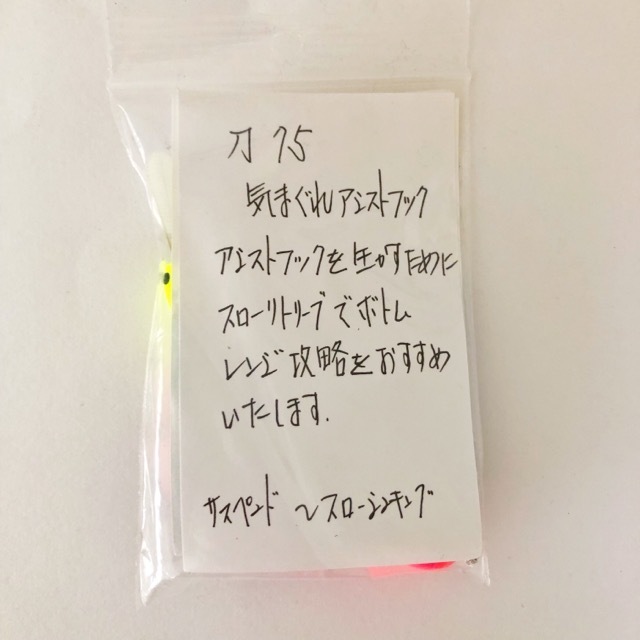 刀 75
気まぐれアシストフック
アシストフックを生かすために
スローリトリーブでボトム
レンジ攻略をおすすめ
いたします.
サスペンド 〜スローシンキング